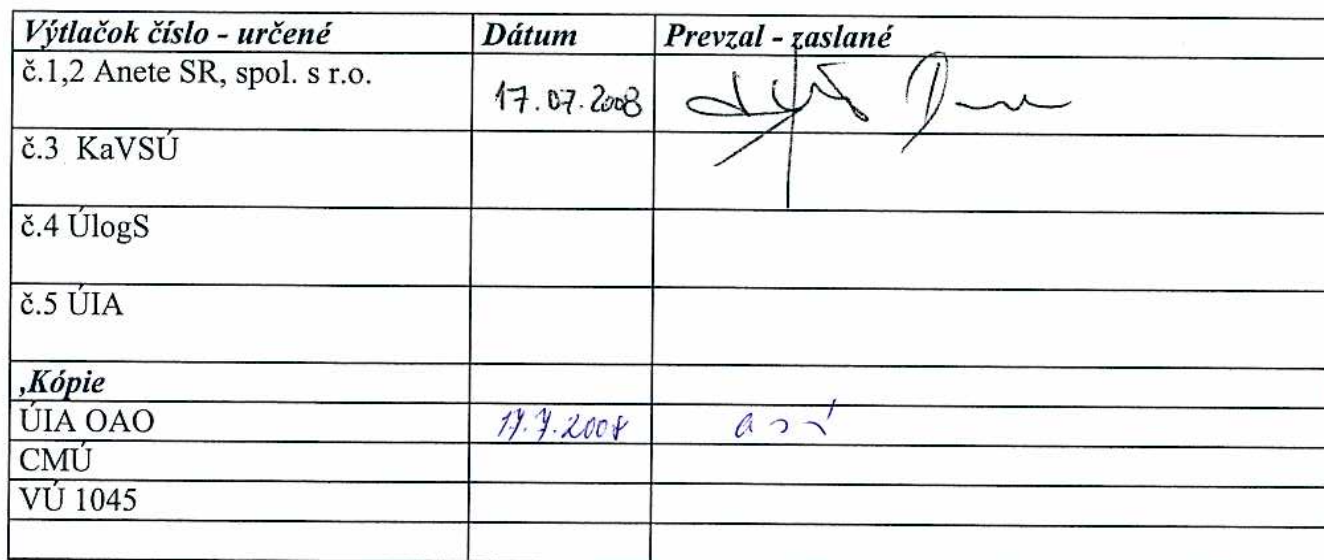 Výtlačok číslo - určené Dátum Prevzal - zaslané
č.1,2 Anete SR, spol. s r.o. 17.07.2008
č.3 KaVSÚ
č.4 ÚlogS
č.5 ÚIA
,Kópie
ÚIA OAO 17.7.2008
CMÚ
VÚ 1045